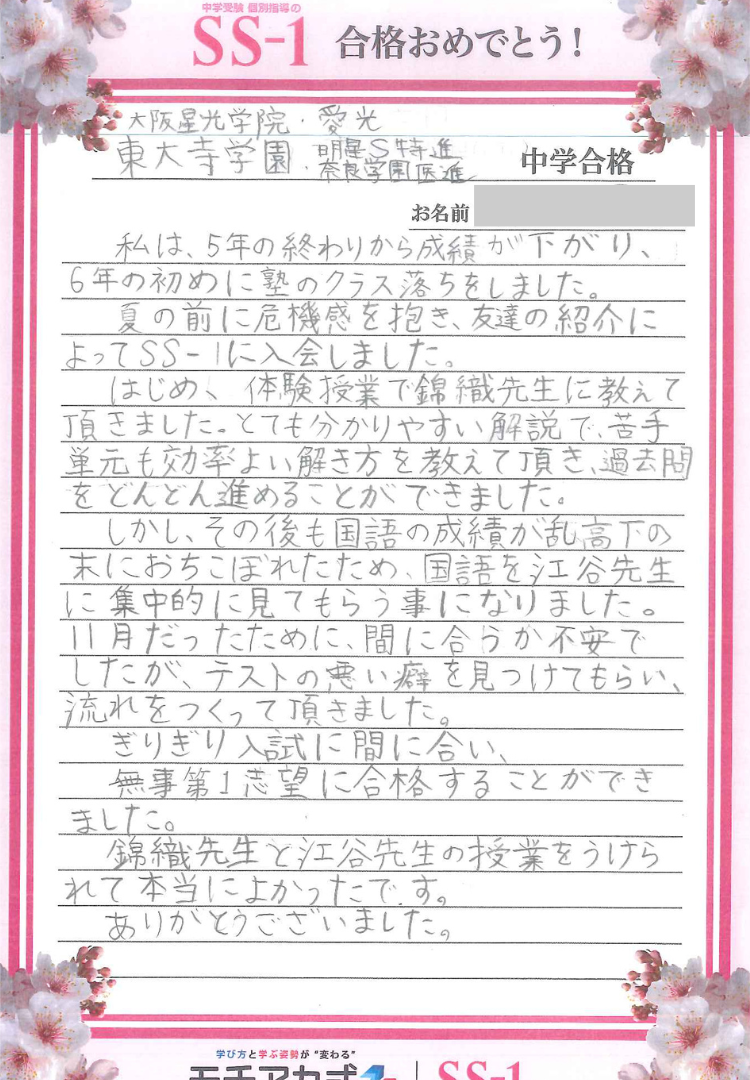 中学受験 個別指導の
SS-1 合格おめでとう!
大阪星光学院・愛光
東大寺学園・明星S特進
奈良学園医進
中学合格
お名前
私は、5年の終わりから成績が下がり、
6年の初めに塾のクラス落ちをしました。
夏の前に危機感を抱き、友達の紹介に
よってSS-1に入会しました。
はじめ、体験授業で錦織先生に教えて
頂きました。とても分かりやすい解説で、苦手
単元も効率よい解き方を教えて頂き、過去問
をどんどん進めることができました。
しかし、その後も国語の成績が乱高下の
末におちこぼれたため、国語を江谷先生
に集中的に見てもらう事になりました。
11月だったために、間に合うか不安で
したが、テストの悪い癖を見つけてもらい、
流れをつくって頂きました。
ぎりぎり入試に間に合い、
無事第1志望に合格することができ
ました。
錦織先生と江谷先生の授業をうけら
れて本当によかったです。
ありがとうございました。
学び方と学ぶ姿勢が"変わる"
SS-1